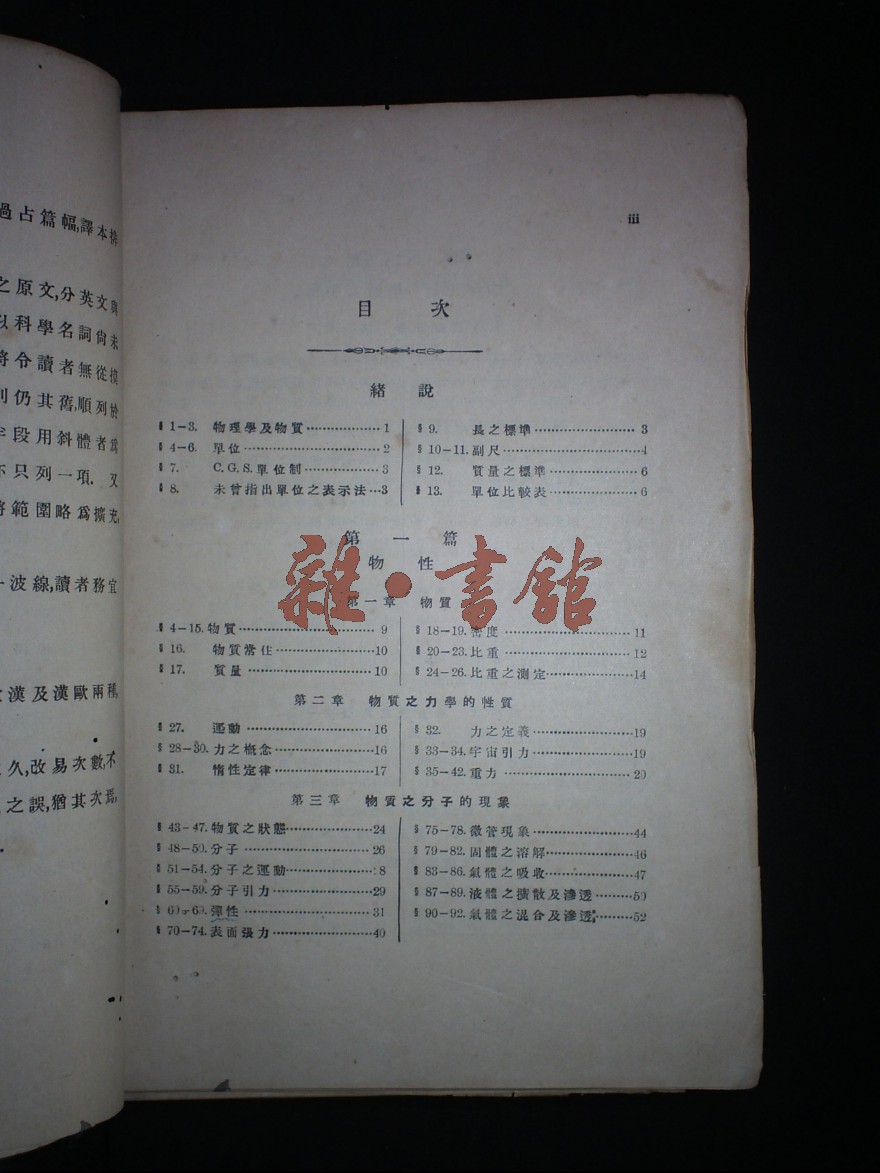 iii
目次
緒說
§ 1-3. 物理學及物質 1
§ 4-6. 單位 2
§ 7. C.G.S. 單位制 3
§ 8. 未曾指出單位之表示法 3
§ 9. 長之標準 3
§ 10-11. 副尺 4
§ 12. 質量之標準 6
§ 13. 單位比較表 6
第一篇
物性
雜·書館
第一章 物質
§ 4-15. 物質 9
§ 16. 物質常住 10
§ 17. 質量 10
§ 18-19. 密度 11
§ 20-23. 比重 12
§ 24-26. 比重之測定 14
第二章 物質之力學的性質
§ 27. 運動 16
§ 28-30. 力之概念 16
§ 31. 惰性定律 17
§ 32. 力之定義 19
§ 33-34. 宇宙引力 19
§ 35-42. 重力 20
第三章 物質之分子的現象
§ 43-47. 物質之狀態 24
§ 48-50. 分子 26
§ 51-54. 分子之運動 8
§ 55-59. 分子引力 29
§ 60-69. 彈性 31
§ 70-74. 表面張力 40
§ 75-78. 微管現象 44
§ 79-82. 固體之溶解 46
§ 83-86. 氣體之吸收 47
§ 87-89. 液體之擴散及滲透 50
§ 90-92. 氣體之混合及滲透 52
過占篇幅,譯本排
之原文,分英文與
以科學名詞尙未
將令讀者無從摸
則仍其舊,順列於
字段用斜體者爲
亦只列一項. 又
將範圍略爲擴充,
波線,讀者務宜
漢及漢歐兩種,
久,改易次數,不
之誤,猶其次焉,